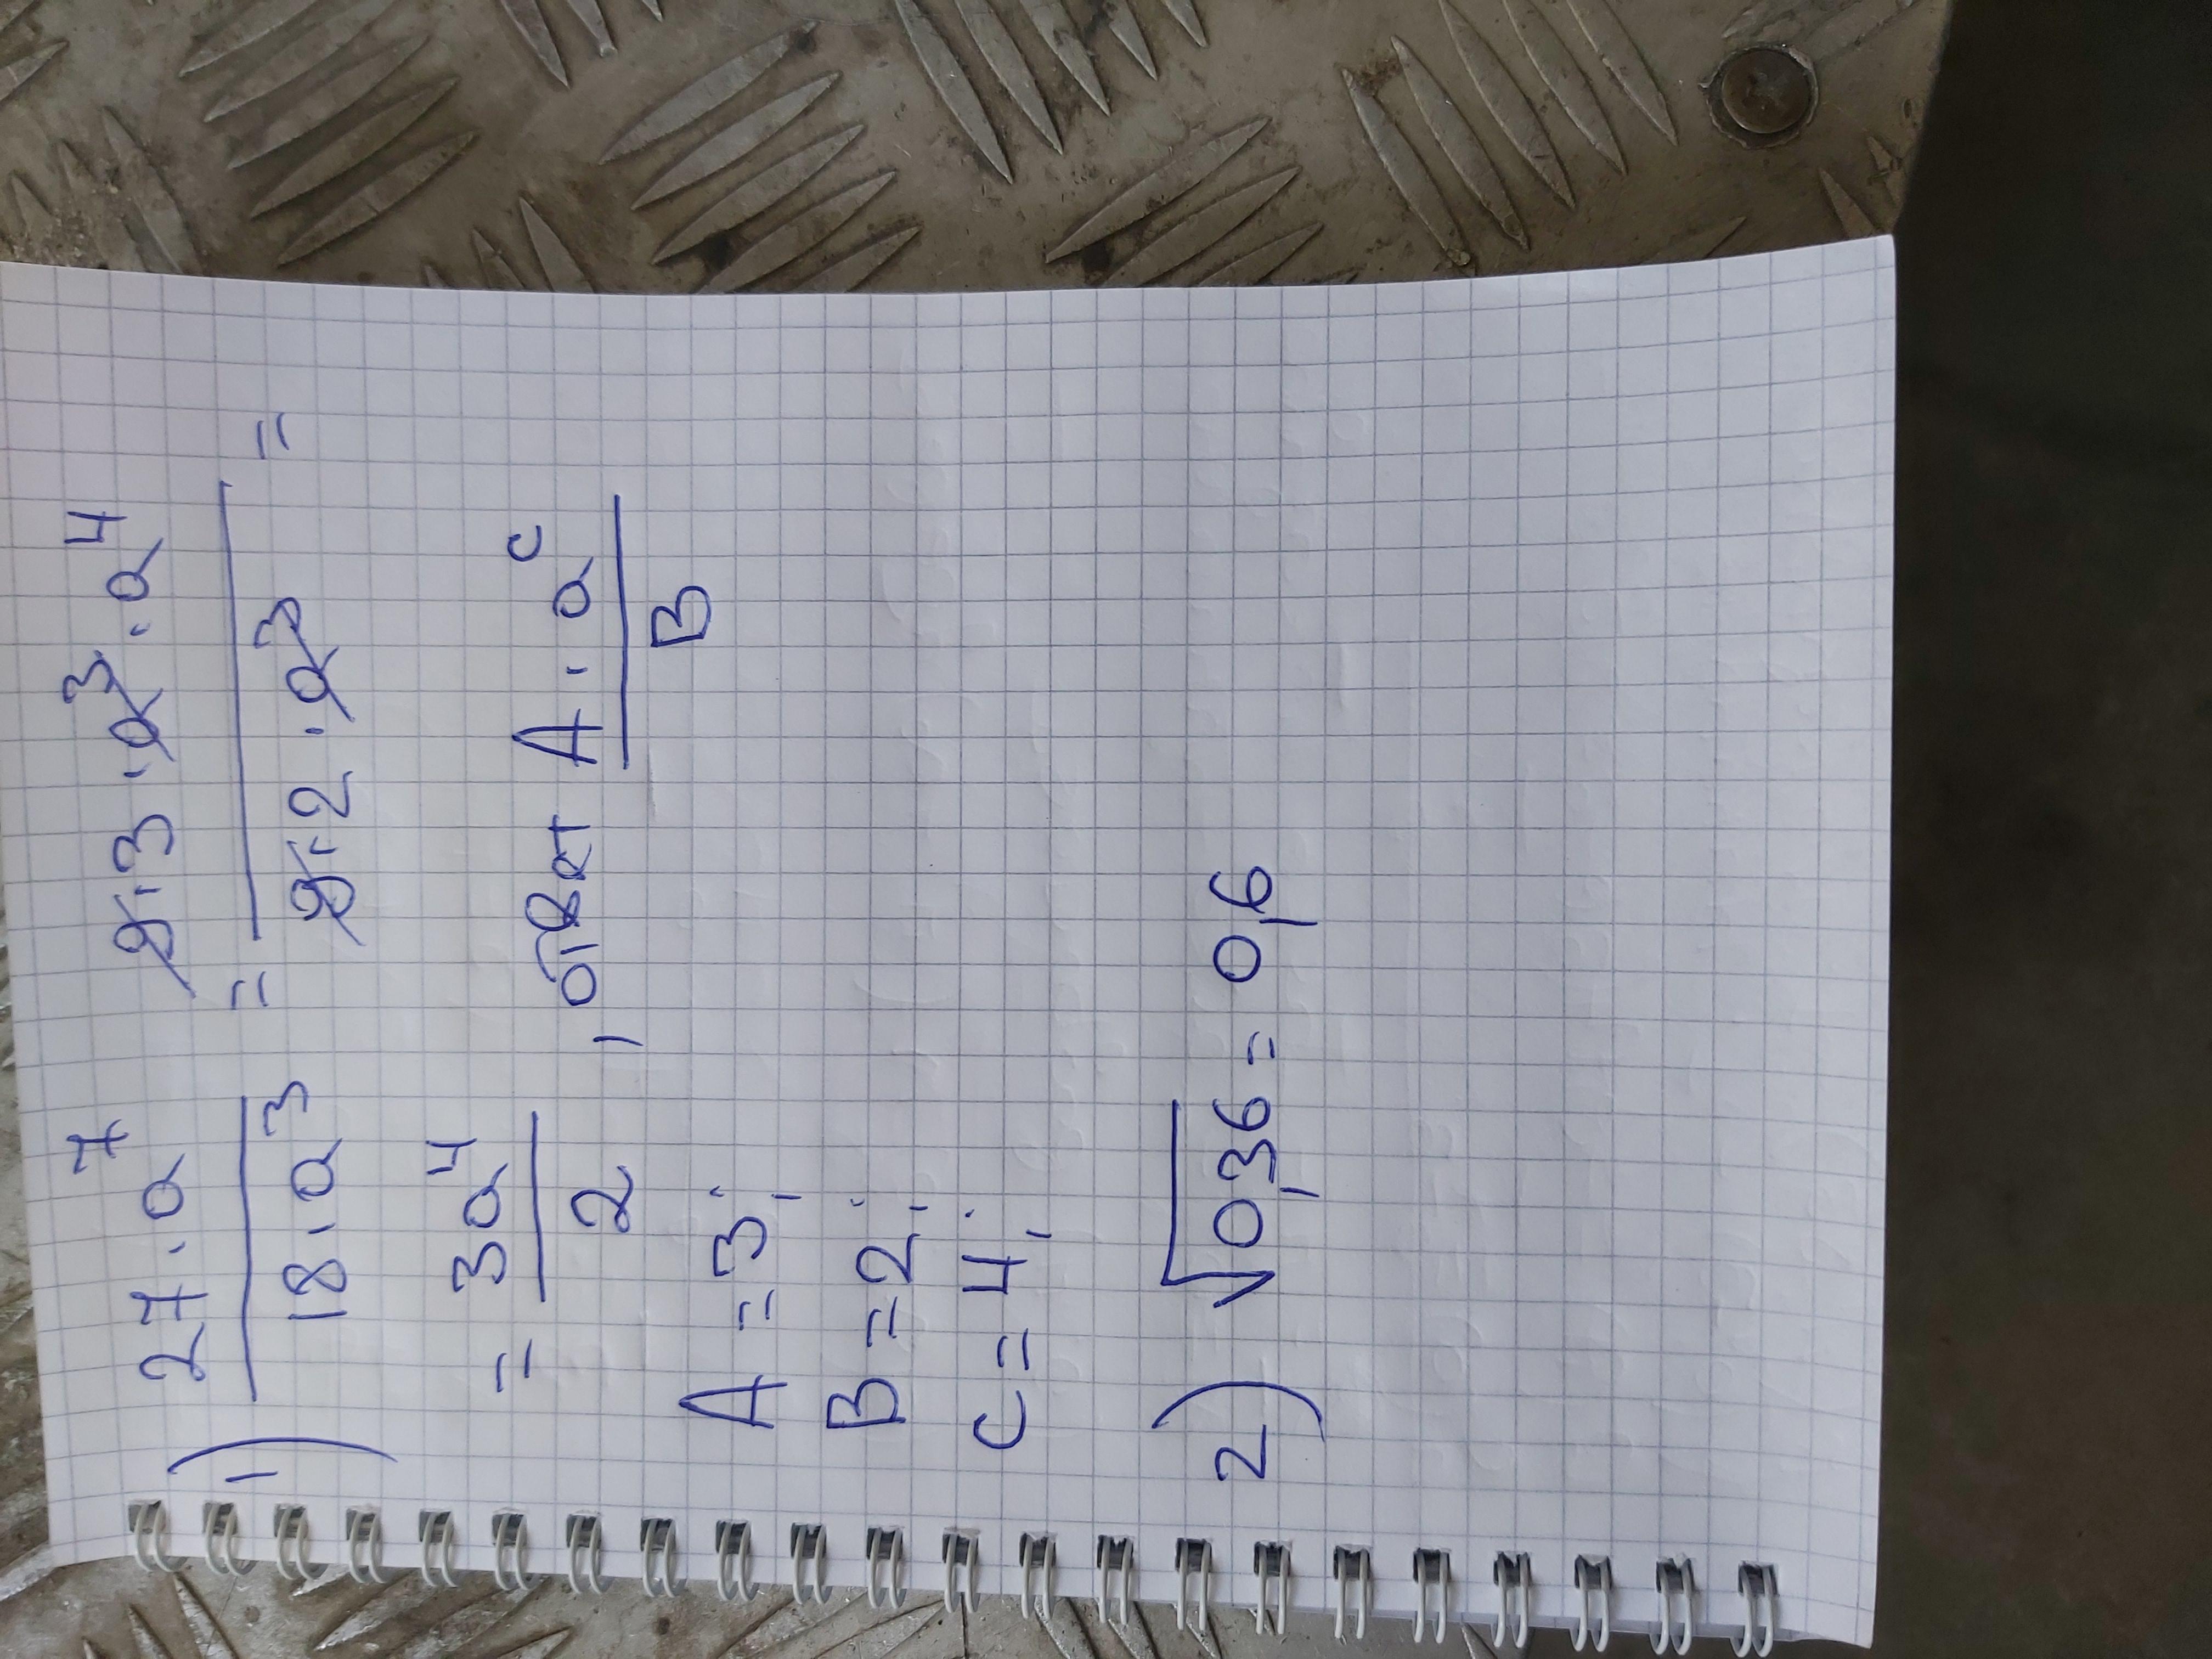 1) 27·a⁷/18·a³ = 9·3·a³·a⁴/9·2·a³ =
= 3a⁴/2, ответ A·a^c/B
A = 3;
B = 2;
C = 4;
2) √0,36 = 0,6